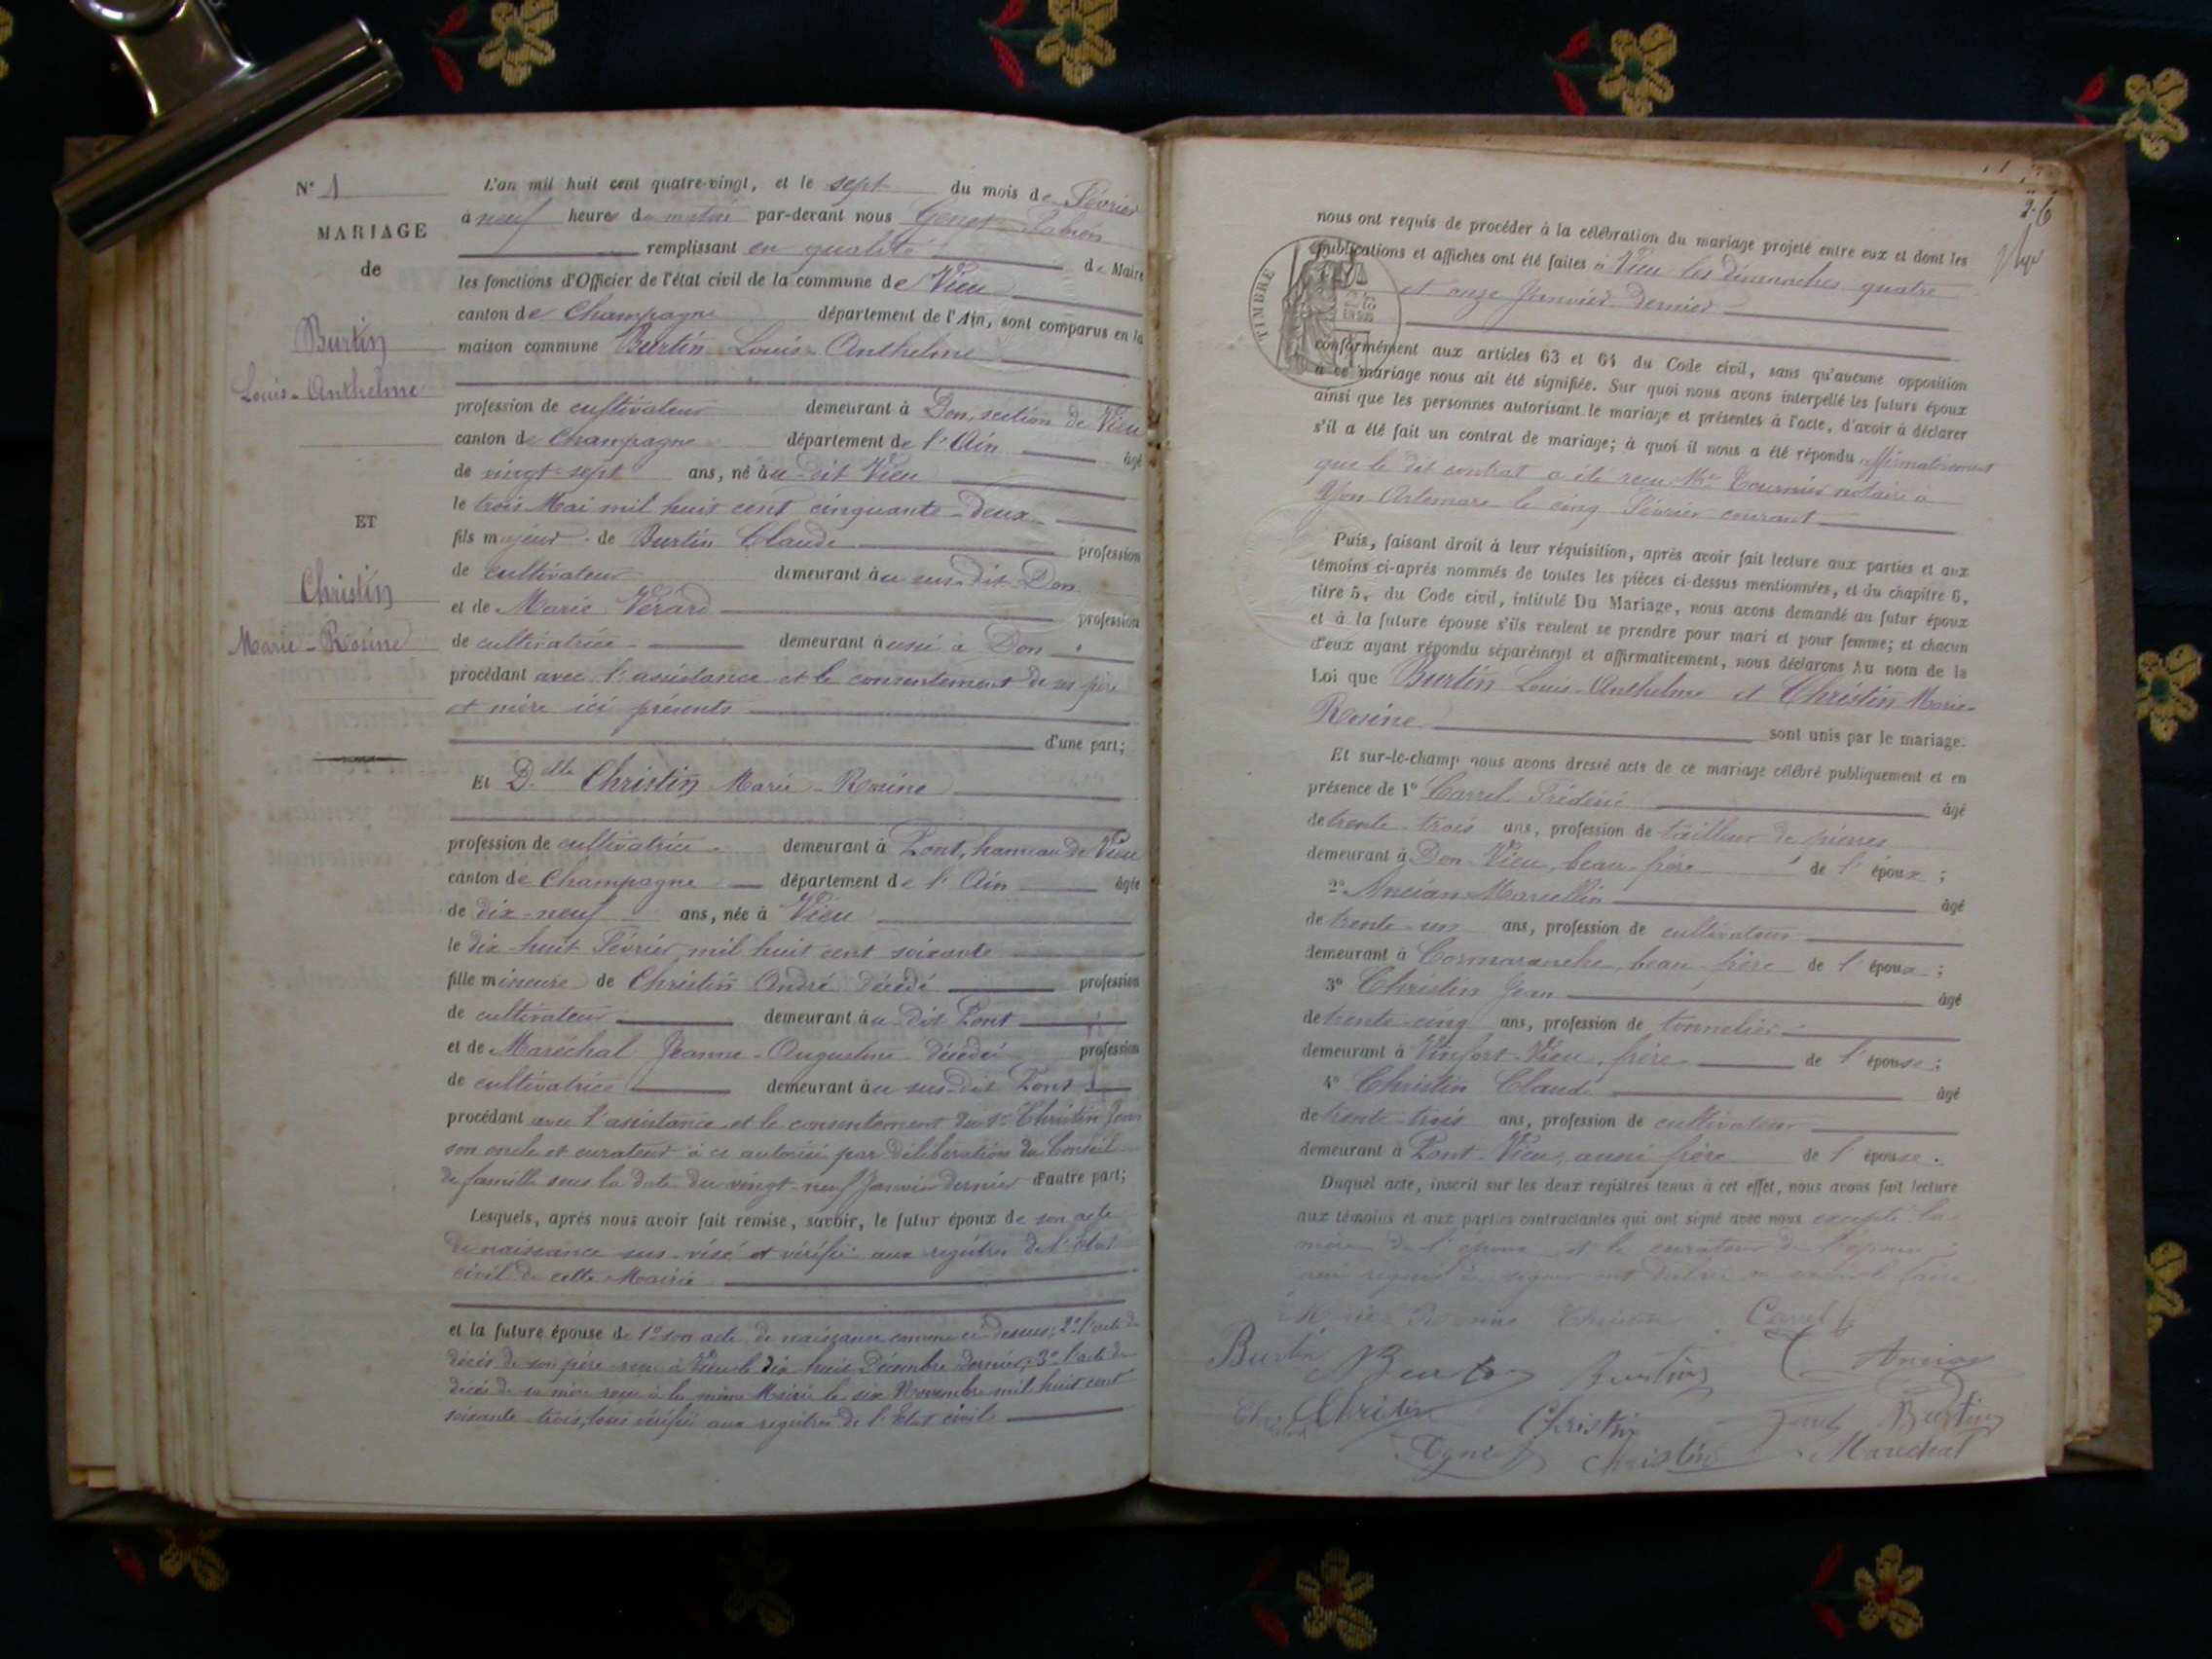 N° 1
MARIAGE
de
Burtin
Louis-Anthelme
ET
Christin
Marie-Rosine
L'an mil huit cent quatre-vingt, et le sept du mois de Février
à neuf heures du matin par-devant nous
remplissant en qualité de Maire
les fonctions d'Officier de l'état civil de la commune de Vieu
canton de Champagne département de l'Ain, sont comparus en la
maison commune Burtin Louis-Anthelme
profession de cultivateur demeurant à Don, section de Vieu
canton de Champagne département de l'Ain âgé
de vingt-sept ans, né au dit Vieu
le trois Mai mil huit cent cinquante-deux
fils majeur de Burtin Claude profession
de cultivateur demeurant au sus-dit Don
et de Marie Vérard profession
de cultivatrice demeurant aussi à Don
procédant avec l'assistance et le consentement de ses père
et mère ici présents
d'une part;
Et Dlle Christin Marie-Rosine
profession de cultivatrice demeurant à Pont, hameau de Vieu
canton de Champagne département de l'Ain âgée
de dix-neuf ans, née à Vieu
le dix-huit Février mil huit cent soixante
fille mineure de Christin André décédé profession
de cultivateur demeurant au dit Pont
et de Maréchal Jeanne-Augustine décédée profession
de cultivatrice demeurant au sus-dit Pont
procédant avec l'assistance et le consentement du sr Christin Jean
son oncle et curateur à ce autorisé par délibération du Conseil
de famille sous la date du vingt-neuf Janvier dernier d'autre part;
Lesquels, après nous avoir fait remise, savoir, le futur époux de son acte
de naissance sus-visé et vérifié aux registres de l'état
civil de cette Mairie
et la future épouse de 1° son acte de naissance comme ci-dessus; 2° l'acte de
décès de son père reçu à Vieu le dix huit Décembre dernier; 3° l'acte de
décès de sa mère reçu à la même Mairie le six Novembre mil huit cent
soixante-trois, tous vérifiés aux registres de l'Etat civil
2-6
TIMBRE
nous ont requis de procéder à la célébration du mariage projeté entre eux et dont les
publications et affiches ont été faites à Vieu les dimanches quatre
et onze Janvier dernier
conformément aux articles 63 et 64 du Code civil, sans qu'aucune opposition
à ce mariage nous ait été signifiée. Sur quoi nous avons interpellé les futurs époux
ainsi que les personnes autorisant le mariage et présentes à l'acte, d'avoir à déclarer
s'il a été fait un contrat de mariage; à quoi il nous a été répondu affirmativement
que le dit contrat a été reçu Me Tournier notaire à
Yon Artemare le cinq Février courant
Puis, faisant droit à leur réquisition, après avoir fait lecture aux parties et aux
témoins ci-après nommés de toutes les pièces ci-dessus mentionnées, et du chapitre 6,
titre 5, du Code civil, intitulé Du Mariage, nous avons demandé au futur époux
et à la future épouse s'ils veulent se prendre pour mari et pour femme; et chacun
d'eux ayant répondu séparément et affirmativement, nous déclarons Au nom de la
Loi que Burtin Louis-Anthelme et Christin Marie-
Rosine sont unis par le mariage.
Et sur-le-champ nous avons dressé acte de ce mariage célébré publiquement et en
présence de 1° Carrel Frédéric âgé
de trente-trois ans, profession de tailleur de pierres
demeurant à Don-Vieu, beau-frère de l'époux;
2° Ancian Marcellin âgé
de trente-un ans, profession de cultivateur
demeurant à Cormaranche, beau-frère de l'époux;
3° Christin Jean âgé
de trente-cinq ans, profession de tonnelier
demeurant à Vinfort-Vieu, frère de l'épouse;
4° Christin Claude âgé
de trente-trois ans, profession de cultivateur
demeurant à Pont-Vieu, aussi frère de l'épouse.
Duquel acte, inscrit sur les deux registres tenus à cet effet, nous avons fait lecture
aux témoins et aux parties contractantes qui ont signé avec nous excepté la
mère de l'époux et le curateur de l'épouse
requis de signer ont déclaré ne savoir le faire
Marie Rosine Christin Carrel
Burtin Burtin Burtin Ancian
Christin Christin Burtin
Christin Maréchal